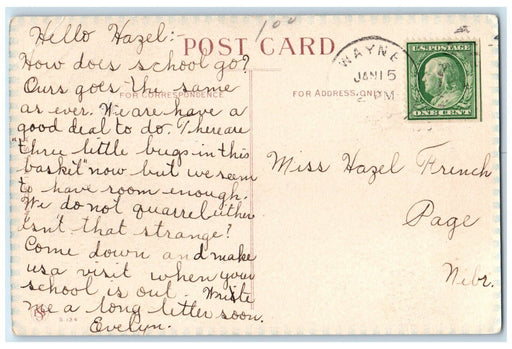 Hello Hazel:-
100
POST CARD
How does school go?
Ours goes the same
FOR CORRESPONDENCE
as ever. We are have a
good deal to do. There are
"three little bugs in this
baskit" now but we seem
to have room enough.
We do not quarrel either
Isn't that strange?
Come down and make
us a visit when your
school is out. Write
me a long letter soon.
Evelyn.
FOR ADDRESS ONLY
WAYNE
JAN 15
M
U.S. POSTAGE
ONE CENT
Miss Hazel French
Page
Nebr.